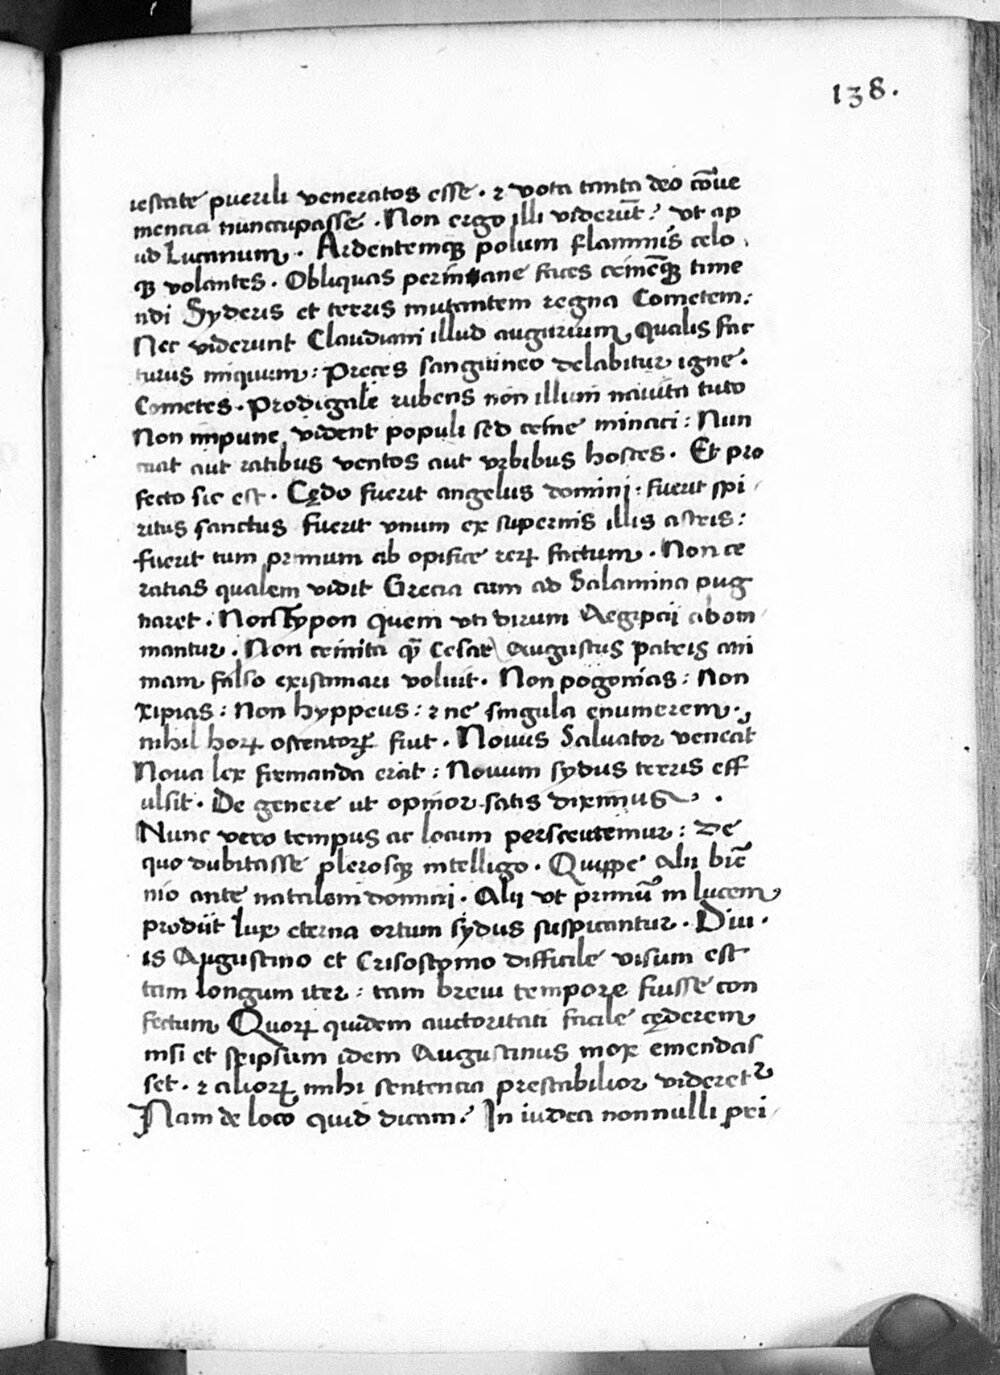 138.
iestate puerili veneratos esse . ⁊ vota tanta deo cōue
mencia nuncupasse . Non ergo illi viderūt? vt ap
ud Lucanum . Ardentemqꝫ polum flammis celo .
qꝫ volantes . Obliquas per inane faces crinēqꝫ time
ndi Syderis et terris mutantem regna Cometem :
Nec viderunt Claudiani illud augurium, qualis fac
turus iniquum : Preces sanguineo delabitur igne .
Cometes . Prodigale rubens non illum nauita tuto
Non impune vident populi sed crine minaci : Nun
ciat aut ratibus ventos aut vrbibus hostes . Et pro
fecto sic est . Cędo fuerit angelus domini : fuerit spi
ritus sanctus fuerit vnum ex supernis illis astris :
fuerit tum primum ab opifice rerꝝ factum . Non ce
ratias qualem vidit Grecia cum ad Salamina pug
naret . Non Typon quem vti dirum Aegiptii abom
inantur . Non crinita qm̄ Cesar Augustus patris ani
mam falso existimari voluit . Non pogonias : Non
xipias : Non hyppeus : ⁊ ne singula enumerem .
nihil horꝝ ostentorꝝ fiut . Novus Salvator veneat
Nova lex firmanda erat : Novum sydus terris eff
ulsit . De genere ut opinor satis diximus .
Nunc vero tempus ac locum perscrutemur : De
quo dubitasse plerosqꝫ intelligo . Quippe alii biē
nio ante natalem domini . Alij vt primū in lucem
prodiit lux eterna ortum sydus suspicantur . Diu .
is Augustino et Crisostomo difficile visum est
tam longum iter : tam brevi tempore fuisse con
fectum Quorꝝ quidem auctoritati facile cęderem
nisi et seipsum idem Augustinus mox emendas
set . ⁊ aliorꝝ mihi sentencia prestabilior videret᷑
Nam de loco quid dicam? In iudea nonnulli pri